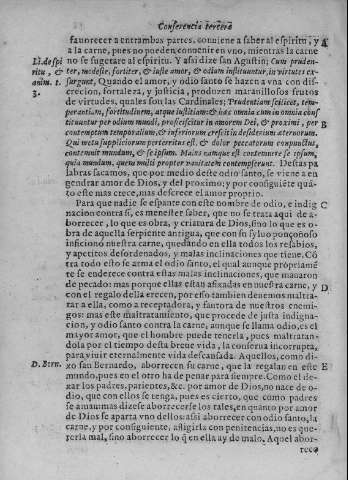 Conferencia tercera
fauorecer a entrambas partes, conuiene a saber al espiritu, y
a la carne, pues no pueden conuenir en vno, mientras la carne
no se sugetare al espiritu. Y assi dize san Agustin; Cum pruden
ter, modeste, fortiter, & iuste amor, & odium instituuntur, in virtutes ex-
surgunt. Quando el amor, y odio santo se hazen a vna con dis-
crecion, fortaleza, y justicia, produzen marauillosos frutos
de virtudes, quales son las Cardinales; Prudentiam scilicet, tem-
perantiam, fortitudinem, atque iustitiam:
contemptum temporalium, & inferiorum
Qui metu suppliciorum perterritus est, & dolor peccatorum compunctus,
contemnit mundum, & se ipsum. Maius namque est contemnere se ipsum,
quia mundum, quem multi propter vanitatem contempserunt. Destas pa
labras sacamos, que por medio deste odio santo, se viene a en
gendrar amor de Dios, y del proximo; y por consiguiẽte quã-
to este mas crece, mas descrece el amor proprio.
Para que nadie se espante con este nombre de odio, e indig
nacion contra si, es menester saber, que no se trata aqui de a-
borrecer, lo que es obra, y criatura de Dios, sino lo que es o-
bra de aquella serpiente antigua, que con su
inficionò nuestra carne, quedando en ella todos los resabios,
y apetitos desordenados, y malas inclinaciones que tiene. Cõ
tra todo esto se arma el odio santo, el qual aunque propriamẽ
te se enderece contra estas malas inclinaciones, que manaron
de pecado: mas porque ellas estan afixadas en nuestra carne, y
con el regalo della crecen, por esso tambien deuemos maltra-
tar a ella, como a receptadora, y fautora de nuestros enemi-
gos: mas este maltratamiento, que procede de justa indigna-
cion, y odio santo contra la carne, aunque se llama odio, es el
mayor amor, que el hombre puede tenerla, pues maltratan-
dola por el tiempo desta breue vida, la conserua incorrupta,
para viuir eternalmente vida descansada. Aquellos, como di-
xo san Bernardo, aborrecen su carne, que la regalan en este
mundo, pues en el otro ha de penar para siempre. Como el de-
xar los padres, parientes, &c. por amor de Dios, no nace de o-
dio, que con ellos se tenga, pues es cierto, que como padres
se aman: mas dizese aborrecerse los tales, en quanto por amor
de Dios se aparta vno dellos: assi aborrecer con odio santo, la
carne, y por consiguiente, afligirla con penitencias, no es que-
rerla mal, sino aborrecer lo q̃ en ella ay de malo. Aquel abor-
rece
Li. de spi
ritu, &
anim. t.
3.
D. Bern.
A
B
C
D
E